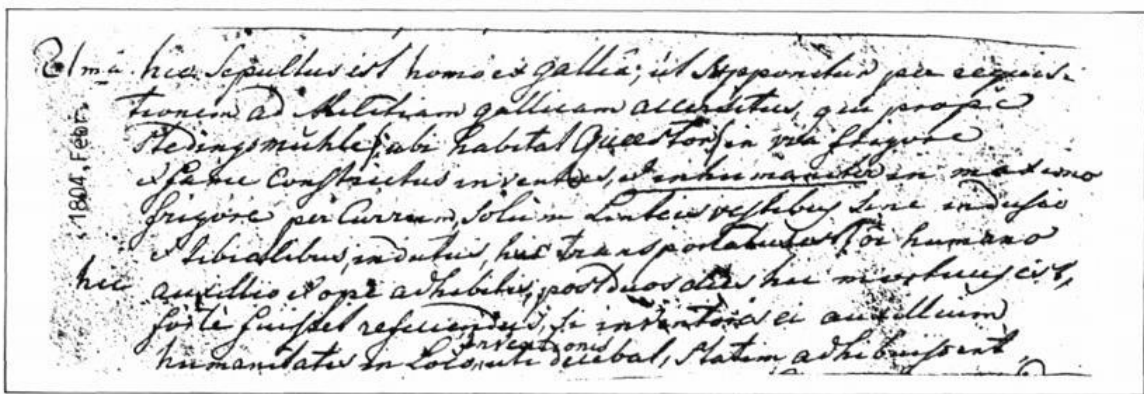 21mâ hic Sepultus est homo ex galliâ, ut Supponitur per requisi-
tionem ad Militiam gallicam accersitus, qui propè
Stedingsmühle (ubi habitat Quaestor) in viâ frigore
et fame constrictus inventus, et inhumaniter in maximo
frigore per Currum, Solùm Linteis vestibus Sine indusio
et tibialibus, indutus, huc transportatus, hic humano
hic auxillio et ope adhibitis, post duos dies hic mortuus est,
fortè fuisset reficiendus, si inventores ei auxillium
inventionis
humanitatis in Loco, uti decebat, Statim adhibuissent.
1804, Febr.